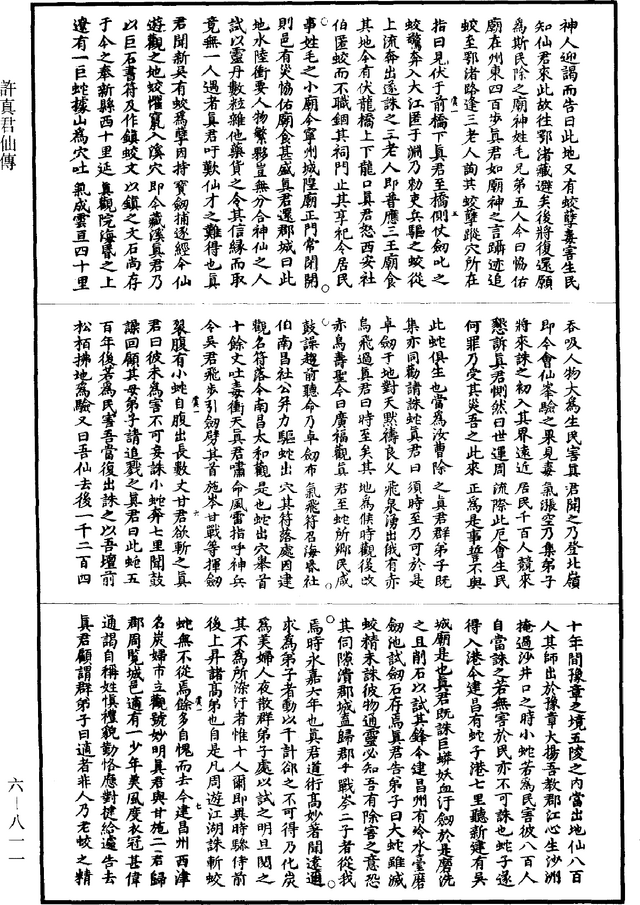 神人迎謁而告曰此地又有蛟孽毒害生民
知仙君來此故往鄂渚藏避矣後將復還願
為斯民除之廟神姓毛兄第五人今曰協佑
廟在州東四百步真君如廟神之言躡迹追
蛟至鄂渚路逢三老人詢其蛟孽蹤穴所在
指曰見伏于前橋下真君至橋側仗劒叱之
蛟驚奔入大江匿于淵乃勑吏兵驅之蛟從
上流奔出遂誅之三老人即普應三王廟食
其地今有伏龍橋上下龍口真君怒西安社
伯匿蛟而不職錮其祠門止其享祀今居民
事姓毛之小廟今寧州城隍廟正門常閉開
則邑有災協佑廟食甚盛真君還郡城曰此
地水陸衝要人物繁夥豈無分合神仙之人
試以靈丹數粒雜他藥貨之令其信緣而取
竟無一人遇者真君吁歎仙才之難得也真
君聞新吳有蛟為孽因持寶劒捕逐經今仙
遊觀之地蛟懼竄入溪穴即今藏溪真君乃
以巨石書符及作鎮蛟文以鎮之文石尚存
于今之奉新縣西十里延真觀院海昬之上
遼有一巨蛇據山為穴吐氣成雲亘四十里
吞吸人物大為生民害真君聞之乃登北嶺
即今會仙峯驗之果見毒氣漲空乃集弟子
將來誅之初入其界遠近居民千百人競來
懇訴真君惻然曰世運周流際此厄會生民
何罪乃受其災吾之此來正為是事誓不與
此蛇俱生也當為汝曹除之真君群弟子既
集亦同勸請誅蛇真君曰須時至乃可於是
卓劒于地對天默禱良久飛泉湧出俄有赤
烏飛過真君曰時至矣其地為候時觀後改
赤烏壽聖今曰廣福觀真君至蛇所鄉民咸
鼓譟趨前聽命乃卓劒布氣飛符召海昬社
伯南昌社公并力驅蛇出穴其符落處因建
觀名符落今南昌太和觀是也蛇出穴舉首
十餘丈吐毒衝天真君嘯命風雷指呼神兵
令吳君飛步引劒劈其首施岑甘戰等揮劒
裂腹有小蛇自腹出長數丈甘君欲斬之真
君曰彼未為害不可妄誅小蛇奔七里聞鼓
譟回顧其母弟子請追戮之真君曰此蛇五
百年後若為民害吾當復出誅之以吾壇前
松栢拂地為驗又曰吾仙去後一千二百四
十年間豫章之境五陵之內當出地仙八百
人其師出於豫章大揚吾教郡江心生沙洲
掩過沙井口之時小蛇若為民害彼八百人
自當誅之若無害於民亦不可誅也蛇子遂
得入港今建昌有蛇子港七里聽新建有吳
城廟是也真君既誅巨蟒妖血汙劒於是磨洗
之且削石以試其鋒今建昌州有冷水臺磨
劒池試劒石存焉真君告弟子曰大蛇雖滅
蛟精未誅彼物通靈必知吾有除害之意恐
其伺隙潰郡城盍歸郡乎戰岑二子者從我
焉時永嘉六年也真君道術高妙著聞遠邇
求為弟子者動以千計卻之不可得乃化炭
為美婦人夜散群弟子處以試之明旦閱之
其不為所涤汙者惟十人爾即異時驂侍前
後上昇諸高弟也自是凡周遊江湖誅斬蛟
蛇無不從焉餘多自愧而去今建昌州西津
名炭婦市立觀號妙明真君與甘施二君歸
郡周覧城邑適有一少年美風度衣冠甚偉
通謁自稱姓慎禮貌勤恪應對捷給遽告去
真君顧謂群弟子曰適者非人乃老蛟之精
許真君仙傳
六－八一一